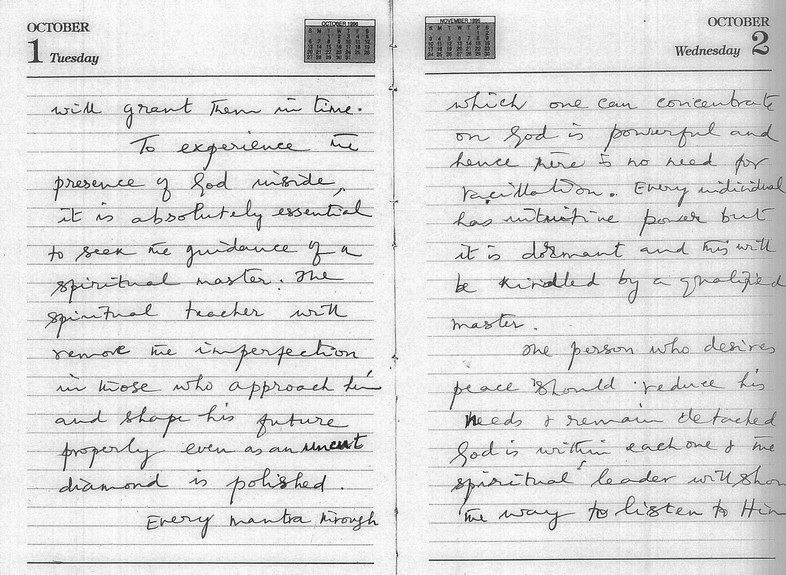 OCTOBER
1 Tuesday
OCTOBER 1996
will grant them in time.
To experience the
presence of God inside,
it is absolutely essential
to seek the guidance of a
spiritual master. The
spiritual teacher will
remove the imperfection
in those who approach him
and shape his future
properly even as an uncut
diamond is polished.
Every mantra through
NOVEMBER 1996
OCTOBER
Wednesday 2
which one can concentrate
on God is powerful and
hence there is no need for
vacillation. Every individual
has intuitive power but
it is dormant and this will
be kindled by a qualified
master.
The person who desires
peace should reduce his
needs & remain detached
God is within each one & the
spiritual leader will show
the way to listen to Him